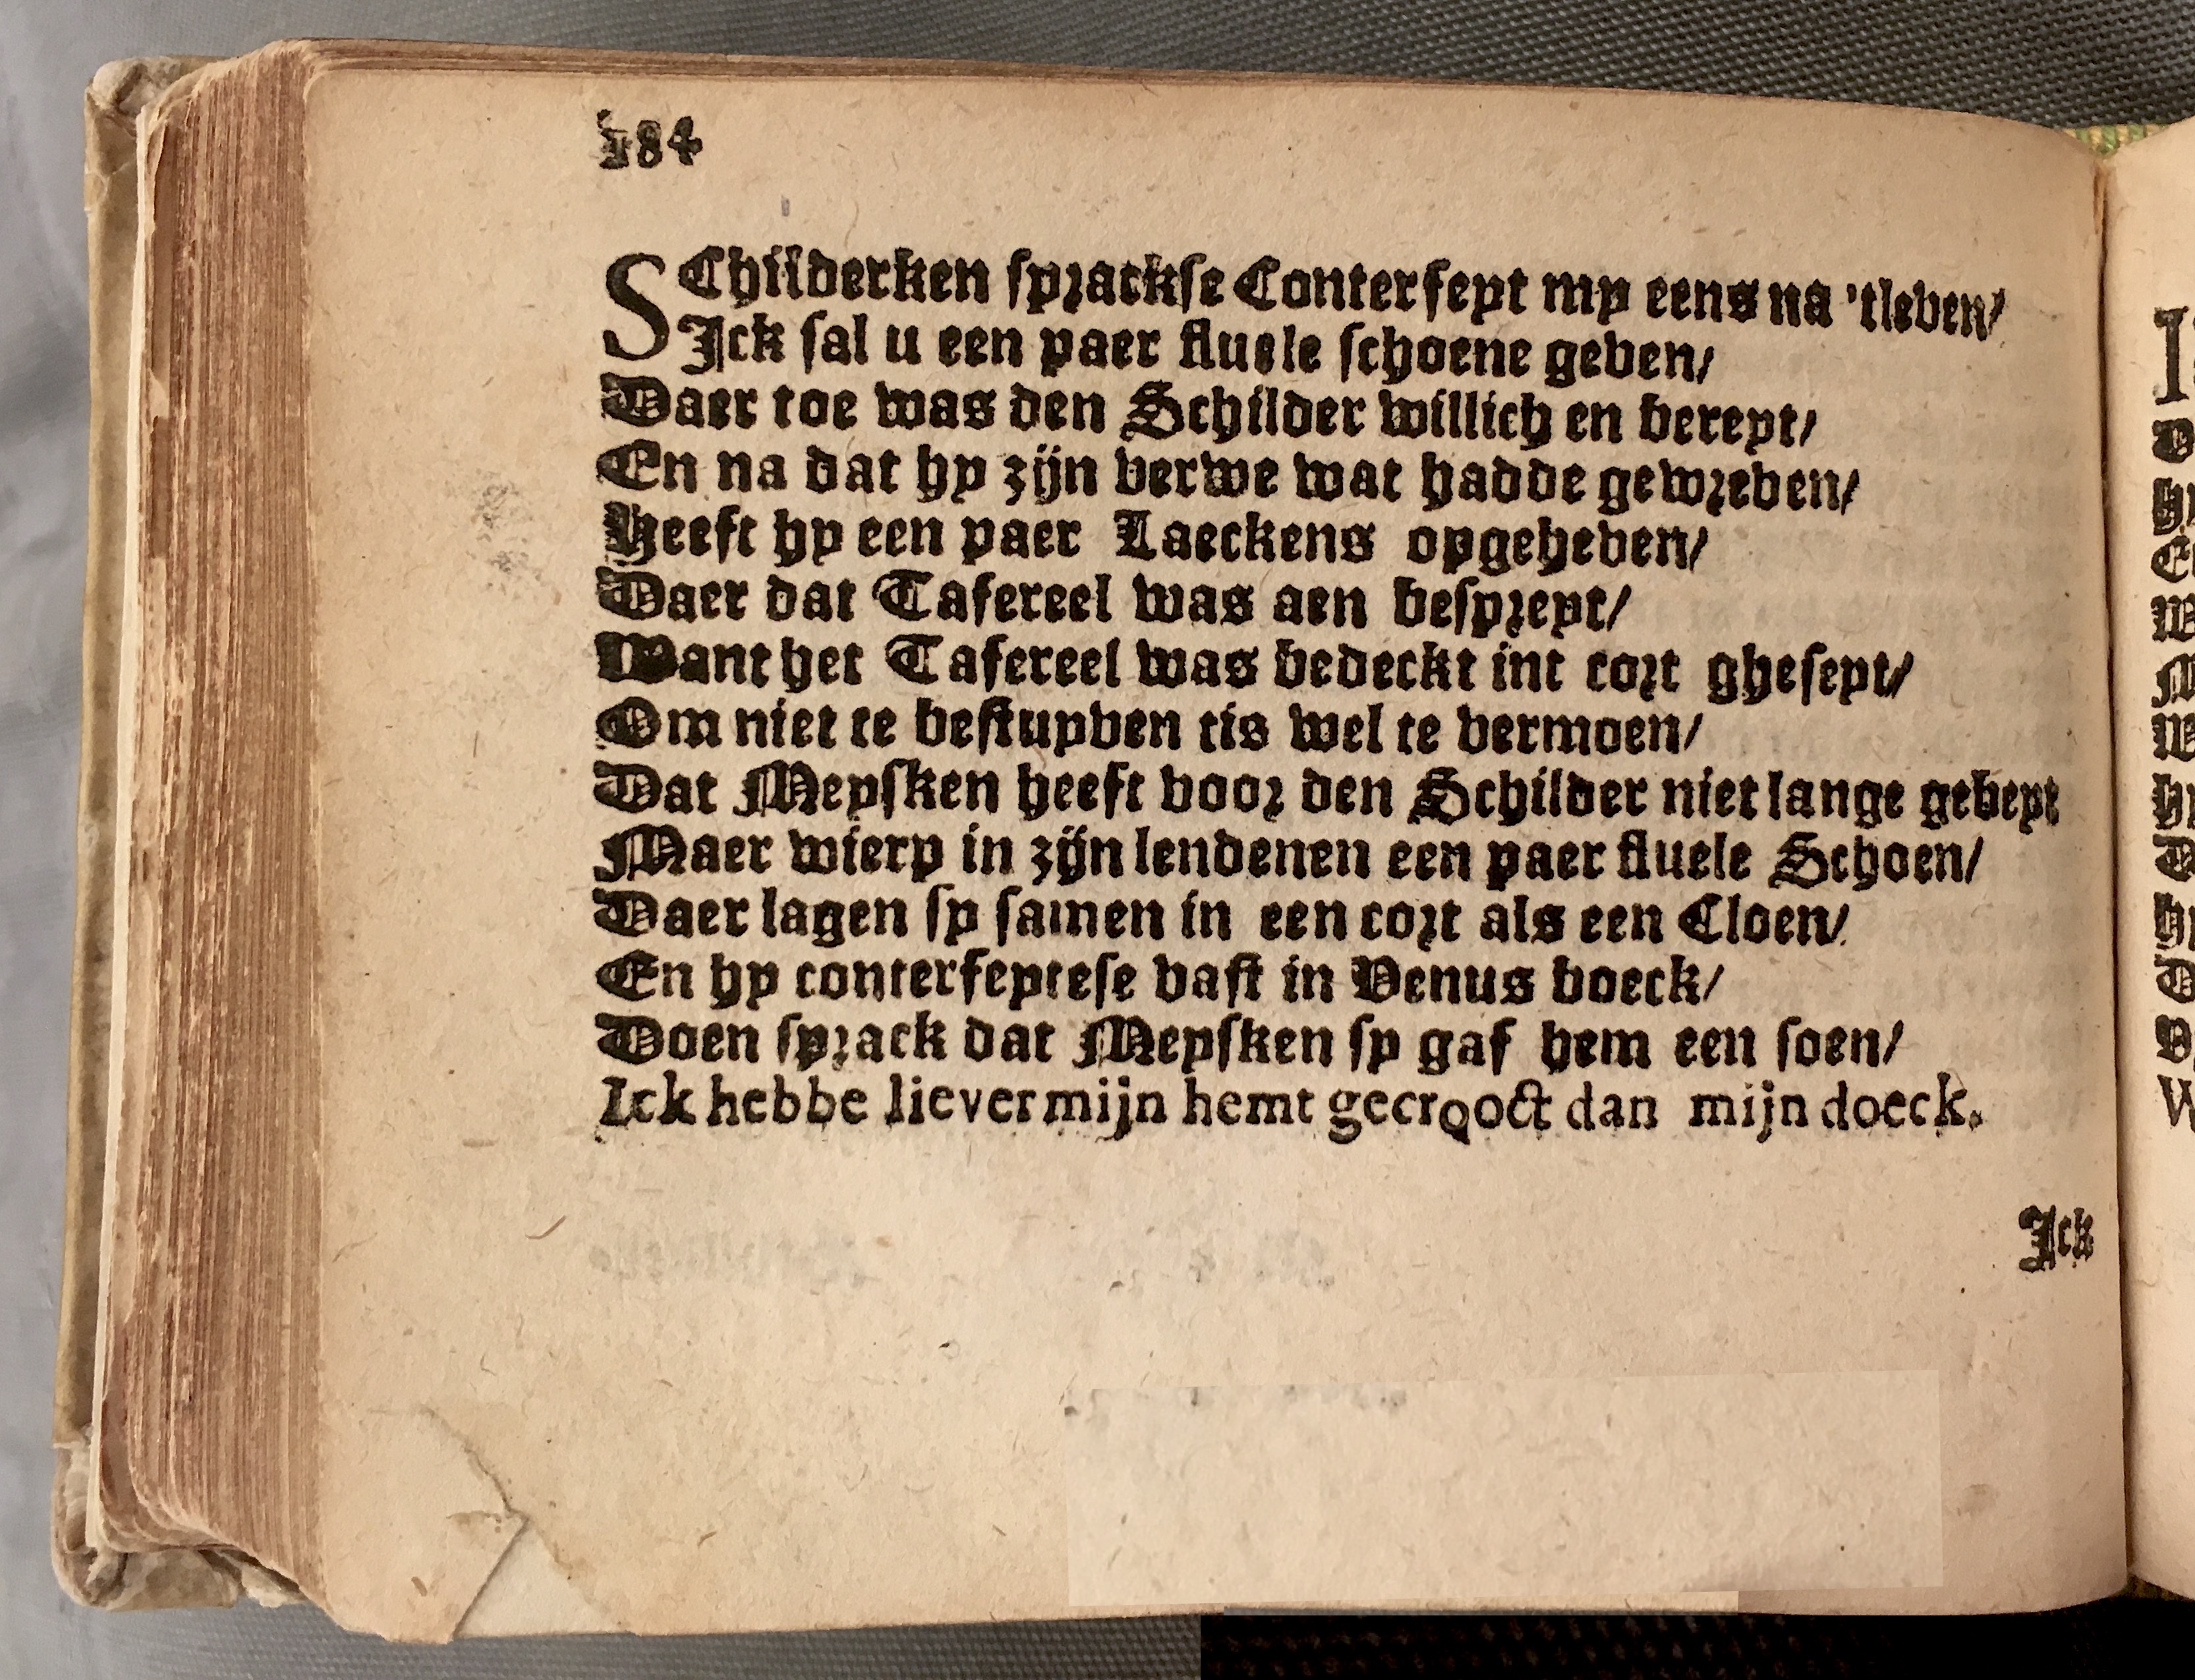 184
SChilderken sprackse Conterfeyt my eens na 'tleven/
Ick sal u een paer fluele schoene geven/
Daer toe was den Schilder willich en bereyt/
En na dat hy zijn verwe wat hadde gewreven/
Heeft hy een paer Laeckens opgeheven/
Daer dat Tafereel was aen bespreyt/
Want het Tafereel was bedeckt int cort gheseyt/
Om niet te bestuyven tis wel te vermoen/
Dat Meysken heeft voor den Schilder niet lange gebeyt
Maer wierp in zijn lendenen een paer fluele Schoen/
Daer lagen sy samen in een cort als een Cloen/
En hy conterfeytese vast in Venus boeck/
Doen sprack dat Meysken sy gaf hem een soen/
Ick hebbe liever mijn hemt gecroockt dan mijn doeck.
Ick